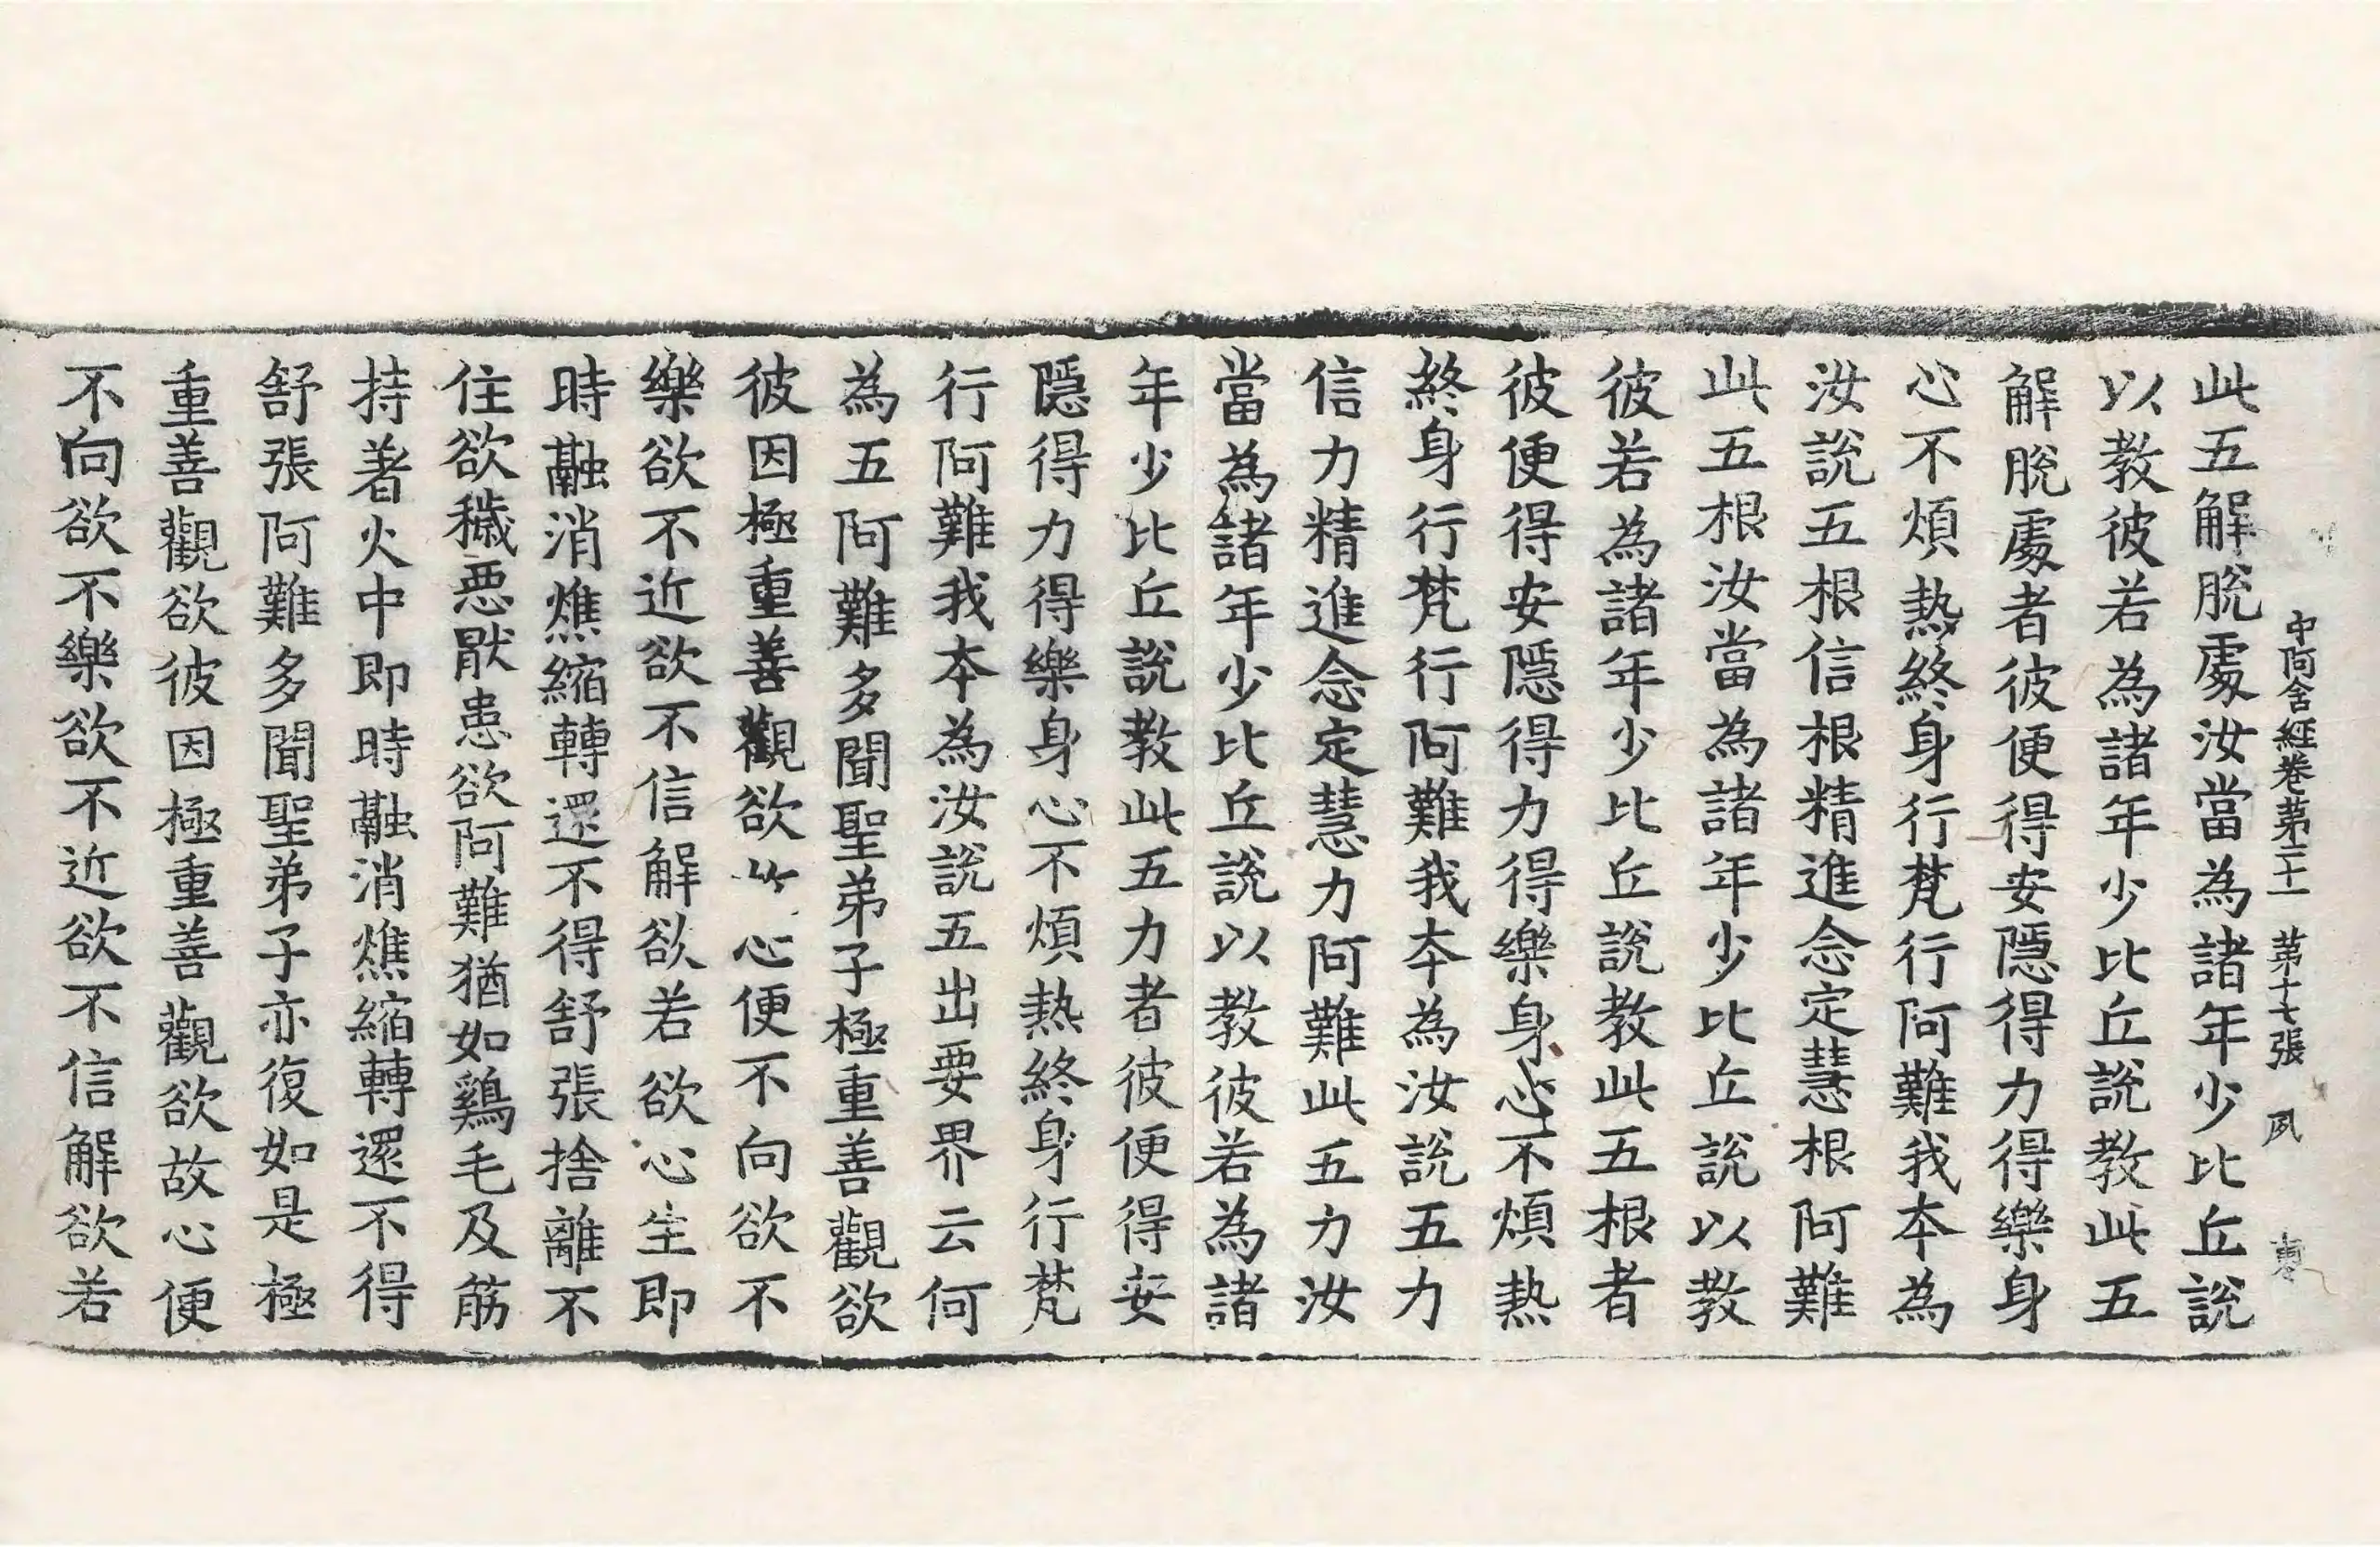 中阿含經卷第二十一 第十七張 夙
此五解脫處汝當為諸年少比丘說
以教彼若為諸年少比丘說教此五
解脫處者彼便得安隱得力得樂身
心不煩熱終身行梵行阿難我本為
汝說五根信根精進念定慧根阿難
此五根汝當為諸年少比丘說以教
彼若為諸年少比丘說教此五根者
彼便得安隱得力得樂身心不煩熱
終身行梵行行阿難我本為汝說五力
信力精進念定慧力阿難此五力汝
當為諸年少比丘說以教彼若為諸
年少比丘說教此五力者彼便得安
隱得力得樂身心不煩熱終身行梵
行阿難我本為汝說五出要界云何
為五阿難多聞聖弟子極重善觀欲
彼因極重善觀欲心便不向欲不
樂欲不近欲不信解欲若欲心生即
時融消燋縮轉還不得舒張捨離不
住欲穢惡厭患欲阿難猶如鷄毛及筋
持著火中即時融消燋縮轉還不得
舒張阿難多聞聖弟子亦復如是極
重善觀欲彼因極重善觀欲故心便
不向欲不樂欲不近欲不信解欲若